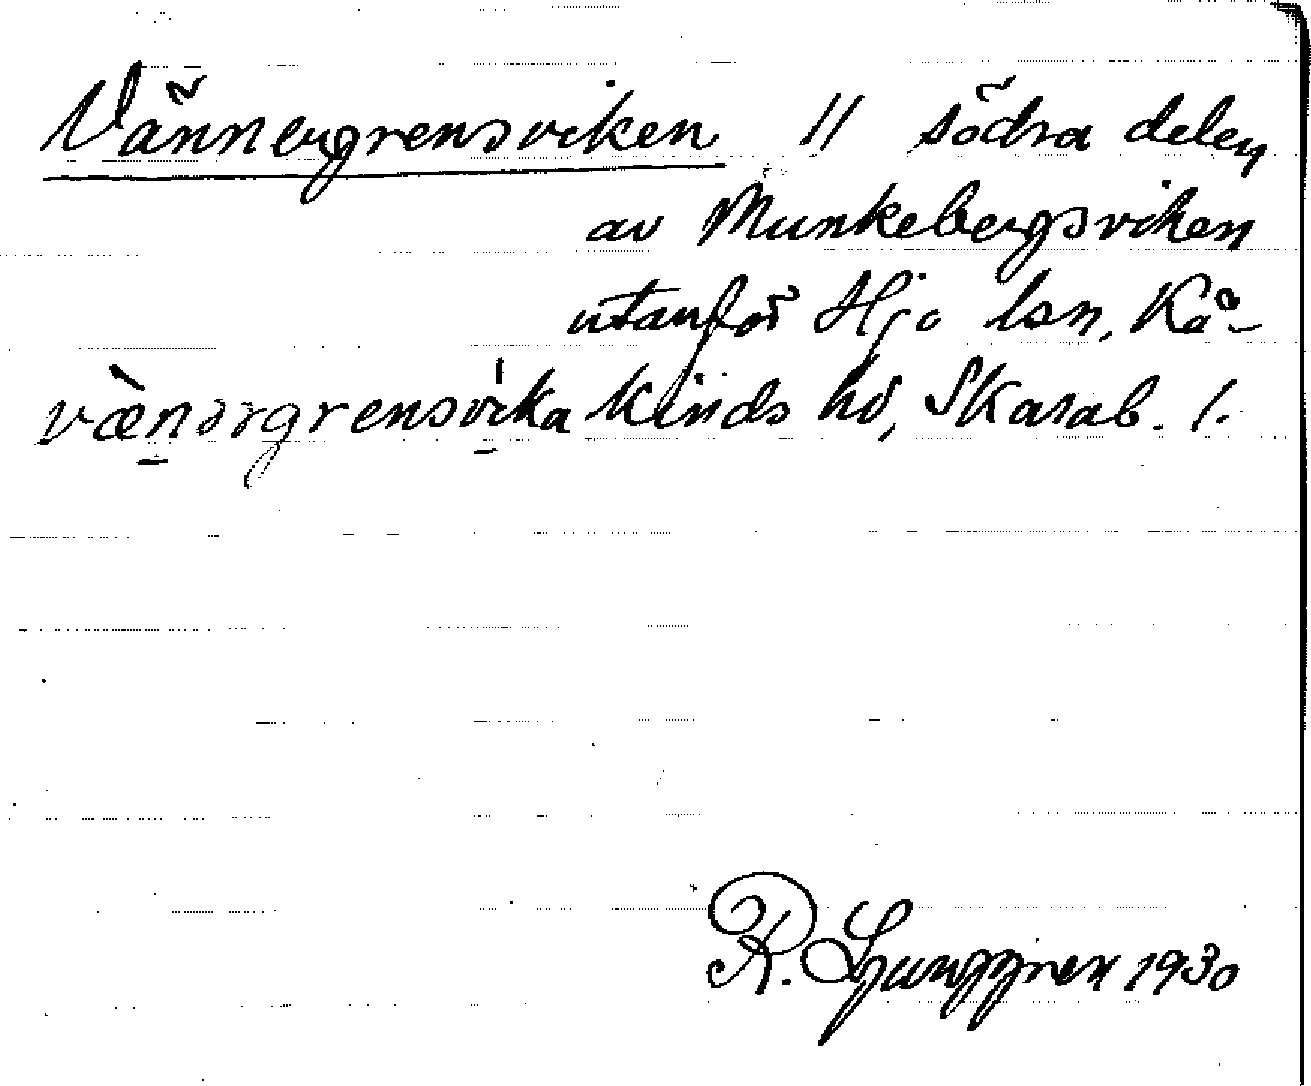 Vännergrensviken // södra delen
av Munkebergsviken
utanför Hjo lsn, Kå-
vænərgrensvika kinds hd, Skarab. l.
R. Ljunggren 1930